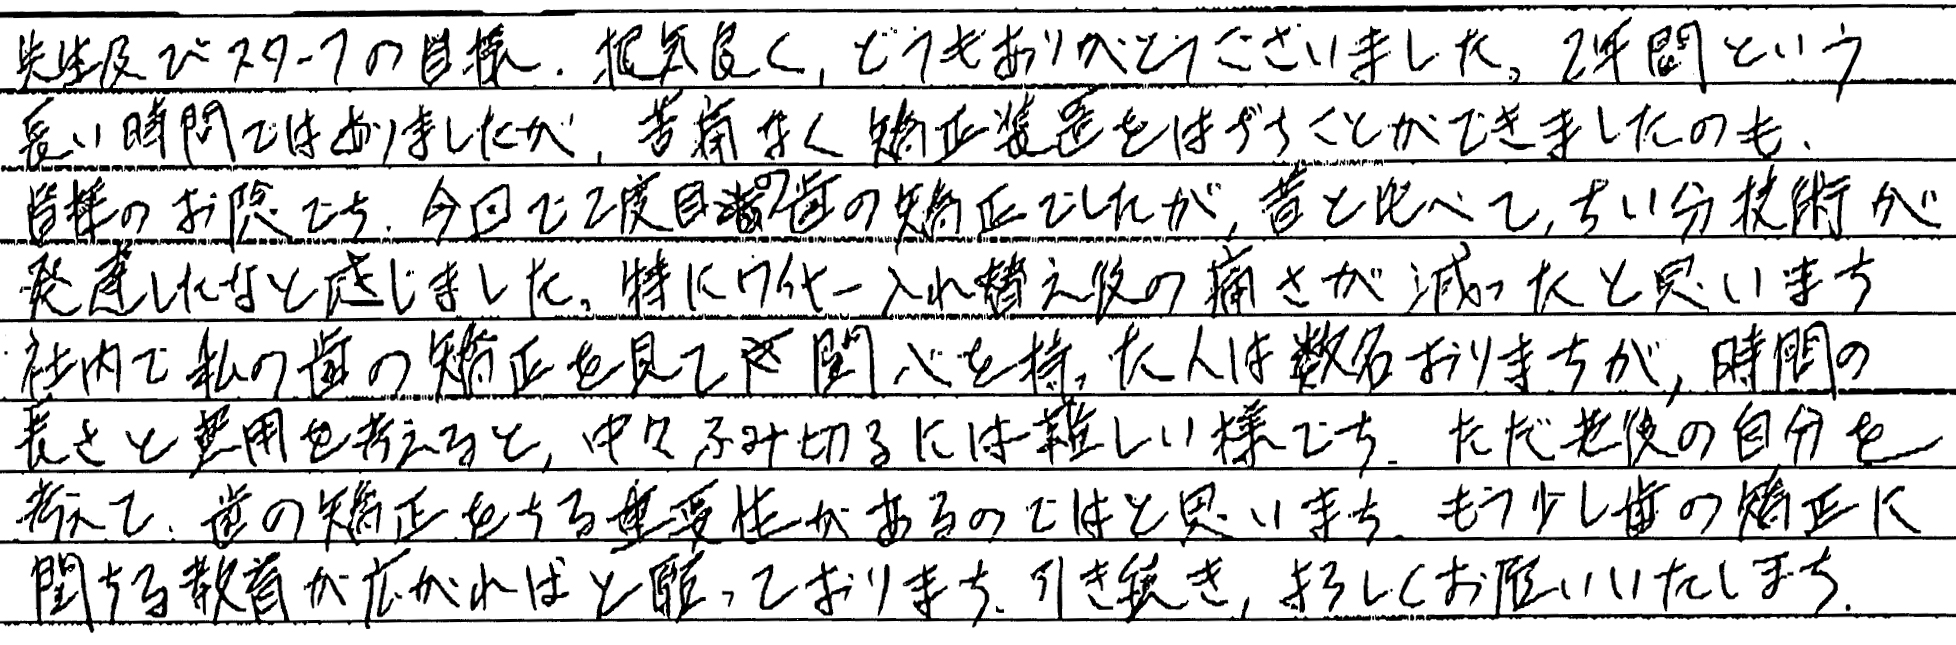 先生及びスタ-フの皆様、根気良く、どうもありがとうございました。2年間という
長い時間ではありましたが、苦痛なく矯正装置をはずすことができましたのも、
皆様のお陰です。今回で2度目の歯の矯正でしたが、昔と比べて、ずい分技術が
発達したなと感じました。特にワイヤー入れ替え後の痛さが減ったと思います
社内で私の歯の矯正を見て関心を持った人は数名おりますが、時間の
長さと費用を考えると、中々ふみ切るには難しい様です。ただ老後の自分を
考えて、歯の矯正をする重要性があるのではと思います。もう少し歯の矯正に
関する教育が広がればと願っております。引き続き、よろしくお願いいたします。